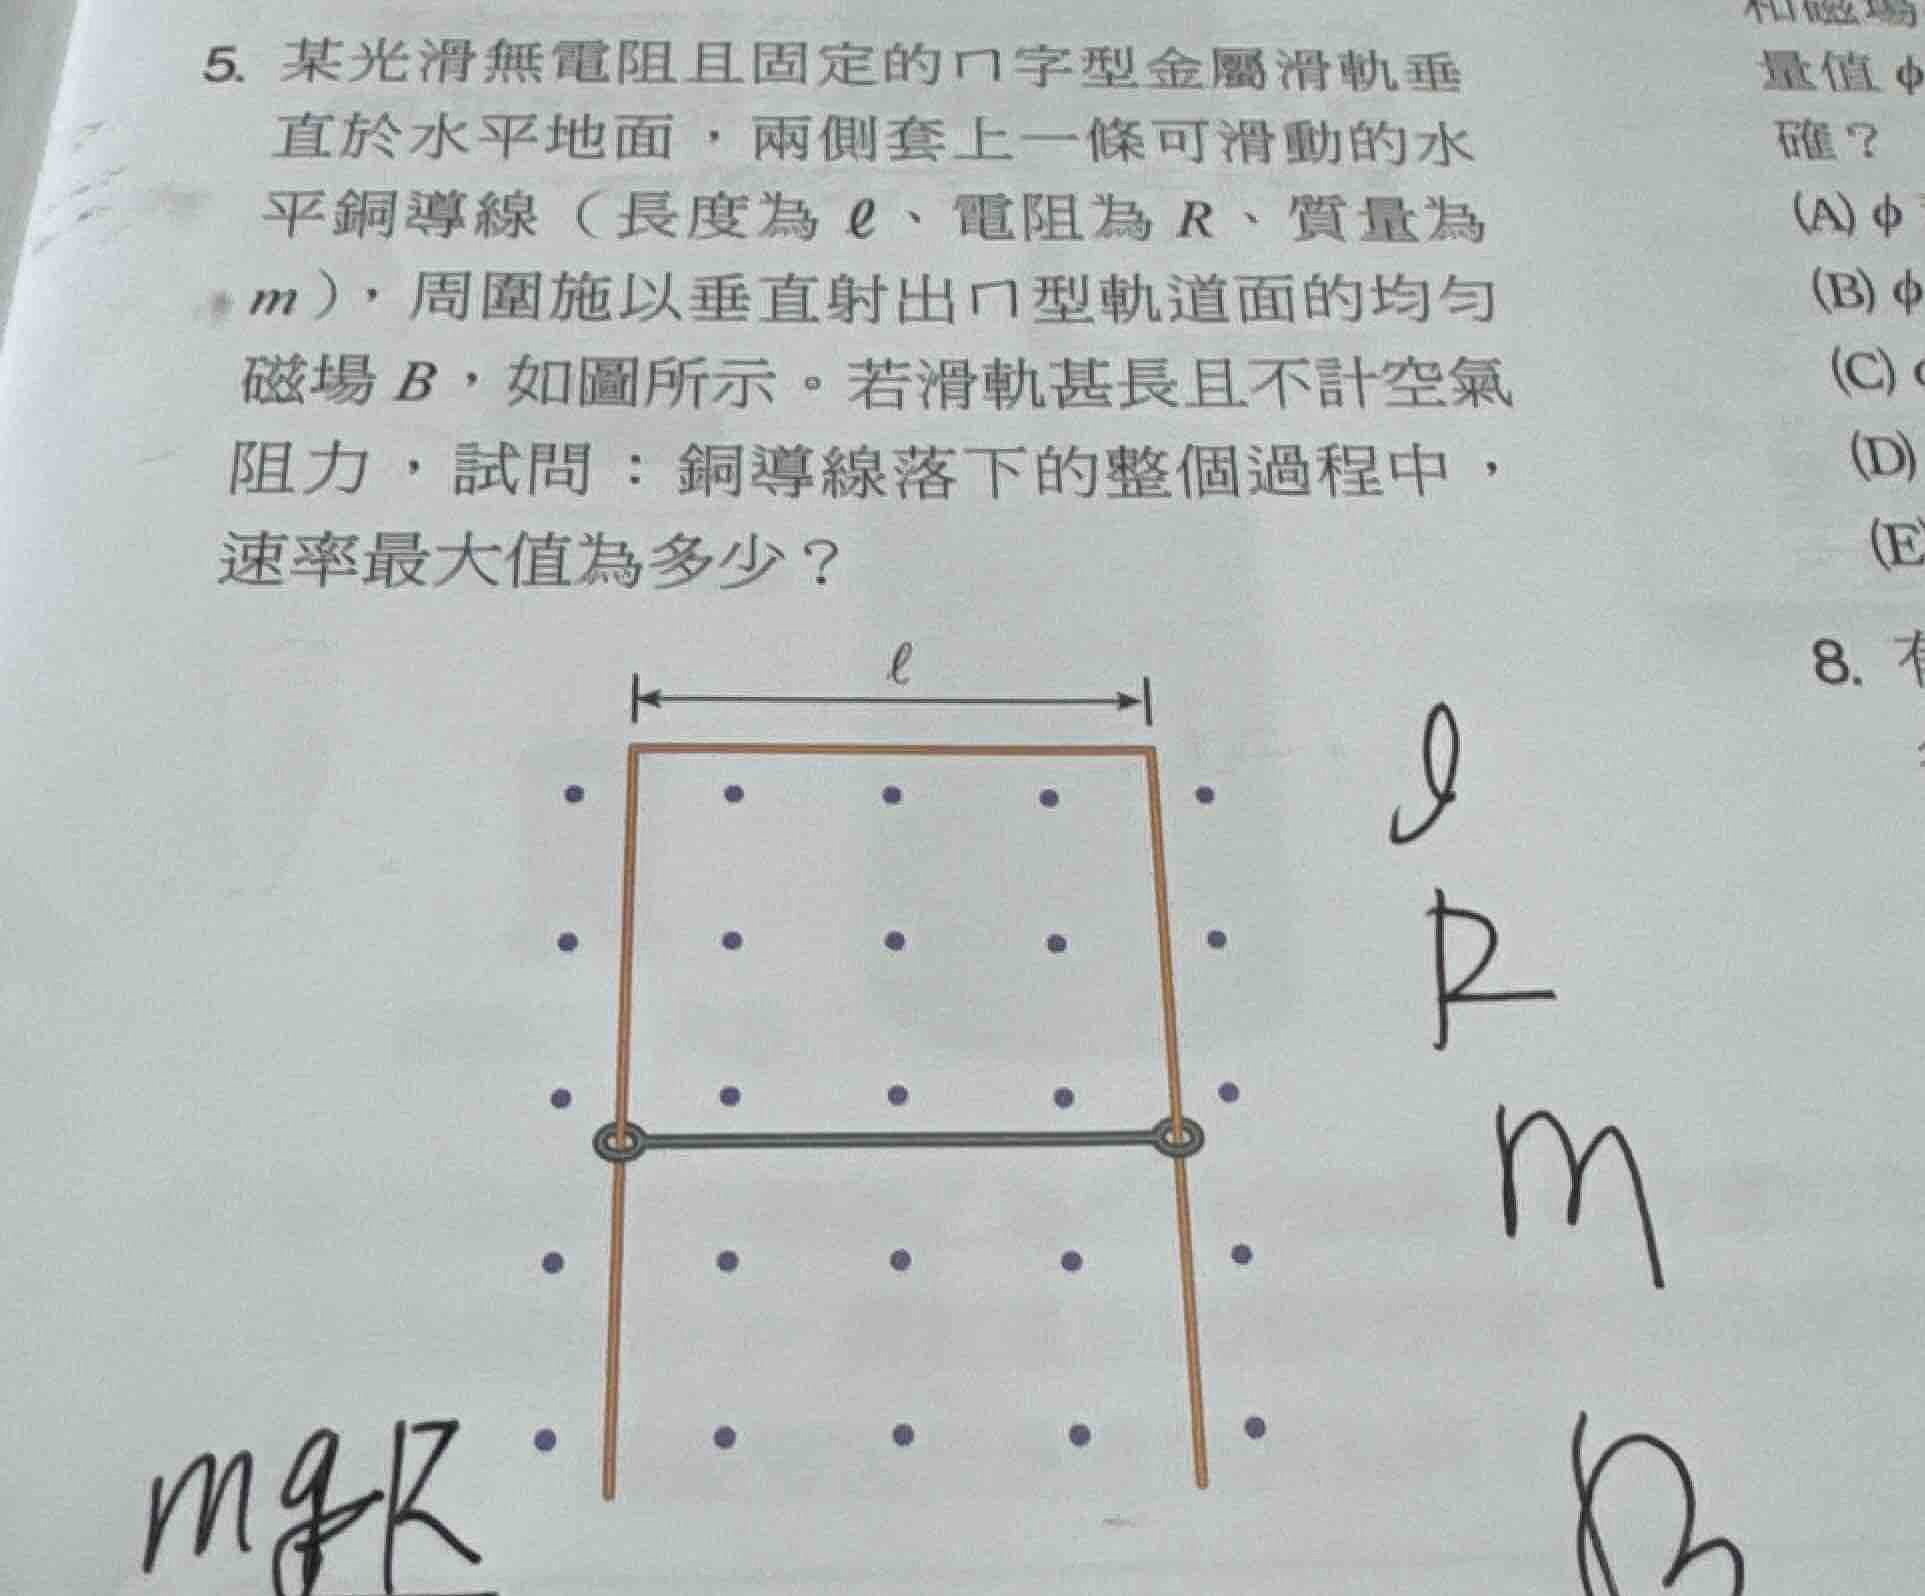 5. 某光滑無電阻且固定的ㄇ字型金屬滑軌垂
直於水平地面，兩側套上一條可滑動的水
平銅導線（長度為 ℓ、電阻為 R、質量為
m），周圍施以垂直射出ㄇ型軌道面的均勻
磁場 B，如圖所示。若滑軌甚長且不計空氣
阻力，試問：銅導線落下的整個過程中，
速率最大值為多少？
ℓ
l
R
m
B
mgR
和磁場
量值 ϕ
確？
(A) ϕ
(B) ϕ
(C)
(D)
(E)
8. 有